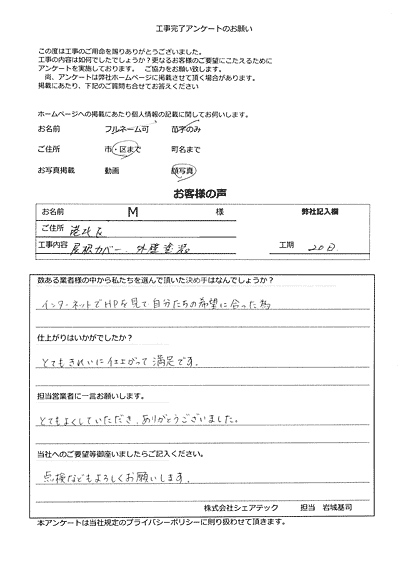 工事完了アンケートのお願い
この度は工事のご用命を賜りありがとうございました。
工事の内容は如何でしたでしょうか？更なるお客様のご要望にこたえるために
アンケートを実施しております。 ご協力をお願い致します。
尚、アンケートは弊社ホームページに掲載させて頂く場合があります。
掲載にあたり、下記のご質問も合せてお答えください
ホームページへの掲載にあたり個人情報の記載に関してお伺いします。
お名前 フルネーム可 苗字のみ
ご住所 市・区まで 町名まで
お写真掲載 動画 顔写真
お客様の声
お名前 M 様 弊社記入欄
ご住所 港北区
工事内容 屋根カバー、外壁塗装 工期 20日
数ある業者様の中から私たちを選んで頂いた決め手はなんでしょうか？
インターネットでHPを見て自分たちの希望に合った為
仕上がりはいかがでしたか？
とてもきれいに仕上がって満足です。
担当営業者に一言お願いします。
とてもよくしていただき、ありがとうございました。
当社へのご要望等御座いましたらご記入ください。
点検などもよろしくお願いします。
株式会社シェアテック 担当 岩城基司
本アンケートは当社規定のプライバシーポリシーに則り扱わせて頂きます。